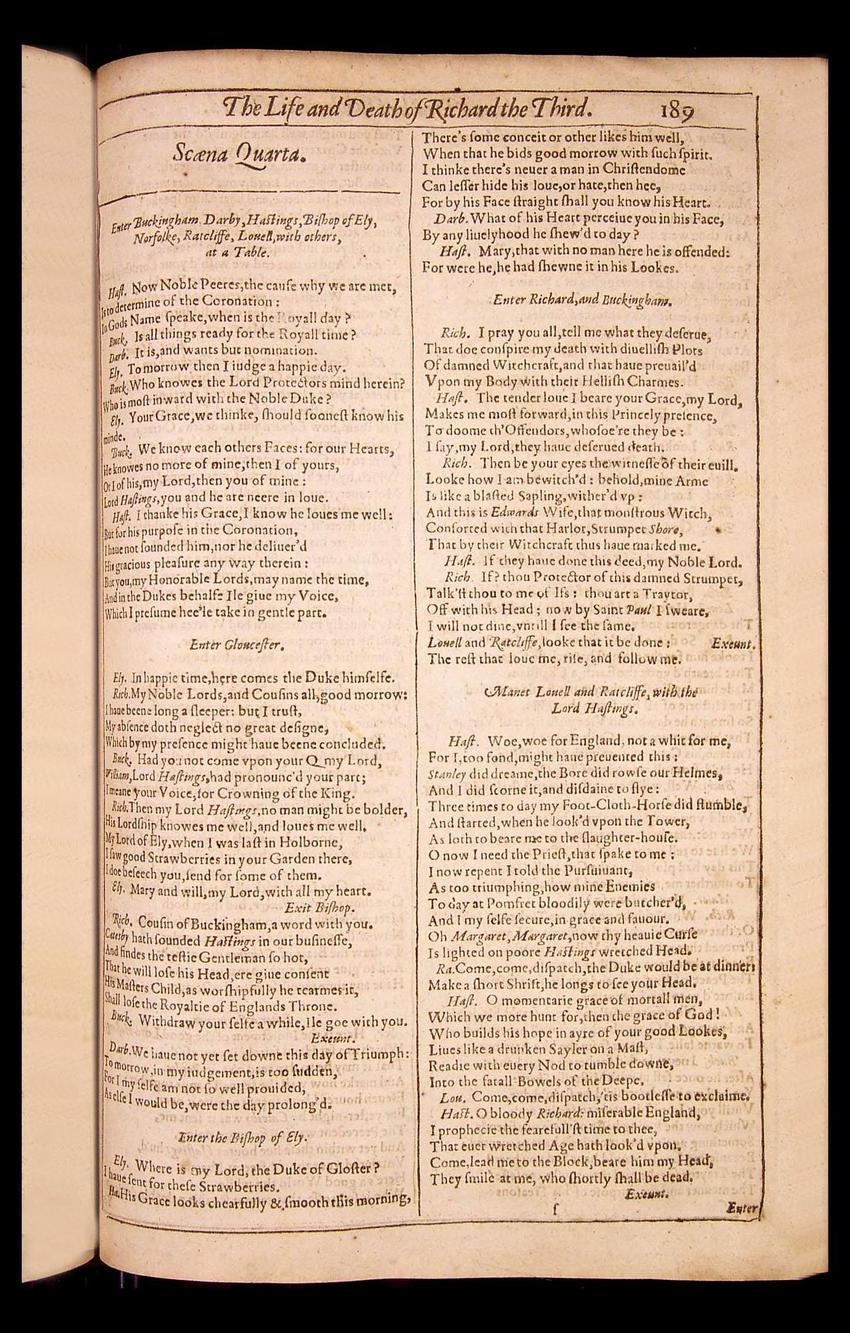 The Life and Death of Richard the Third. 189
Scæna Quarta.
Enter Buckingham, Darby, Hastings, Bishop of Ely,
Norfolke, Ratcliffe, Louell, with others,
at a Table.
Haſt. Now Noble Peeres, the cauſe why we are met,
Is to determine of the Coronation:
In Gods Name ſpeake, when is the Royall day?
Buck. Is all things ready for the Royall time?
Darb. It is, and wants but nomination.
Ely. To morrow then I iudge a happie day.
Buck. Who knowes the Lord Protectors mind herein?
Who is moſt inward with the Noble Duke?
Ely. Your Grace, we thinke, ſhould ſooneſt know his
minde.
Buck. We know each others Faces: for our Hearts,
He knowes no more of mine, then I of yours,
Or I of his, my Lord, then you of mine:
Lord Haſtings, you and he are neere in loue.
Haſt. I thanke his Grace, I know he loues me well:
But for his purpoſe in the Coronation,
I haue not ſounded him, nor he deliuer'd
His gracious pleaſure any way therein:
But you, my Honorable Lords, may name the time,
And in the Dukes behalfe Ile giue my Voice,
Which I preſume hee'le take in gentle part.
Enter Gloucester.
Ely. In happie time, here comes the Duke himſelfe.
Rich. My Noble Lords, and Couſins all, good morrow:
I haue beene long a ſleeper: but I truſt,
My abſence doth neglect no great deſigne,
Which by my preſence might haue beene concluded.
Buck. Had you not come vpon your Q my Lord,
William, Lord Haſtings, had pronounc'd your part;
I meane your Voice, for Crowning of the King.
Rich. Then my Lord Haſtings, no man might be bolder,
His Lordſhip knowes me well, and loues me well.
My Lord of Ely, when I was laſt in Holborne,
I ſaw good Strawberries in your Garden there,
I doe beſeech you, ſend for ſome of them.
Ely. Mary and will, my Lord, with all my heart.
Exit Biſhop.
Rich. Couſin of Buckingham, a word with you.
Catesby hath ſounded Haſtings in our buſineſſe,
And findes the teſtie Gentleman ſo hot,
That he will loſe his Head, ere giue conſent
His Maſters Child, as worſhipfully he tearmes it,
Shall loſe the Royaltie of Englands Throne.
Buck. Withdraw your ſelfe a while, Ile goe with you.
Exeunt.
Darb. We haue not yet ſet downe this day of Triumph:
To morrow, in my iudgement, is too ſudden,
For I my ſelfe am not ſo well prouided,
As elſe I would be, were the day prolong'd.
Enter the Biſhop of Ely.
Ely. Where is my Lord, the Duke of Gloſter?
I haue ſent for theſe Strawberries.
Ha. His Grace looks chearfully & ſmooth this morning,
There's ſome conceit or other likes him well,
When that he bids good morrow with ſuch ſpirit.
I thinke there's neuer a man in Chriſtendome
Can leſſer hide his loue, or hate, then hee,
For by his Face ſtraight ſhall you know his Heart.
Darb. What of his Heart perceiue you in his Face,
By any liuelyhood he ſhew'd to day?
Haſt. Mary, that with no man here he is offended:
For were he, he had ſhewne it in his Lookes.
Enter Richard, and Buckingham.
Rich. I pray you all, tell me what they deſerue,
That doe conſpire my death with diuelliſh Plots
Of damned Witchcraft, and that haue preuail'd
Vpon my Body with their Helliſh Charmes.
Haſt. The tender loue I beare your Grace, my Lord,
Makes me moſt forward, in this Princely preſence,
To doome th'Offendors, whoſoe're they be:
I ſay, my Lord, they haue deſerued death.
Rich. Then be your eyes the witneſſe of their euill.
Looke how I am bewitch'd: behold, mine Arme
Is like a blaſted Sapling, wither'd vp:
And this is Edwards Wife, that monſtrous Witch,
Conſorted with that Harlot, Strumpet Shore,
That by their Witchcraft thus haue marked me.
Haſt. If they haue done this deed, my Noble Lord.
Rich. If? thou Protector of this damned Strumpet,
Talk'ſt thou to me of Ifs: thou art a Traytor,
Off with his Head; now by Saint Paul I ſweare,
I will not dine, vntill I ſee the ſame.
Louell and Ratcliffe, looke that it be done: Exeunt.
The reſt that loue me, riſe, and follow me.
Manet Louell and Ratcliffe, with the
Lord Haſtings.
Haſt. Woe, woe for England, not a whit for me,
For I, too fond, might haue preuented this:
Stanley did dreame, the Bore did rowſe our Helmes,
And I did ſcorne it, and diſdaine to flye:
Three times to day my Foot-Cloth-Horſe did ſtumble,
And ſtarted, when he look'd vpon the Tower,
As loth to beare me to the ſlaughter-houſe.
O now I need the Prieſt, that ſpake to me:
I now repent I told the Purſuiuant,
As too triumphing, how mine Enemies
To day at Pomfret bloodily were butcher'd,
And I my ſelfe ſecure, in grace and fauour.
Oh Margaret, Margaret, now thy heauie Curſe
Is lighted on poore Haſtings wretched Head.
Ra. Come, come, diſpatch, the Duke would be at dinner:
Make a ſhort Shrift, he longs to ſee your Head.
Haſt. O momentarie grace of mortall men,
Which we more hunt for, then the grace of God!
Who builds his hope in ayre of your good Lookes,
Liues like a drunken Sayler on a Maſt,
Readie with euery Nod to tumble downe,
Into the fatall Bowels of the Deepe.
Lou. Come, come, diſpatch, 'tis bootleſſe to exclaime.
Haſt. O bloody Richard: miſerable England,
I prophecie the fearefull'ſt time to thee,
That euer wretched Age hath look'd vpon.
Come, lead me to the Block, beare him my Head,
They ſmile at me, who ſhortly ſhall be dead.
Exeunt.
f Enter